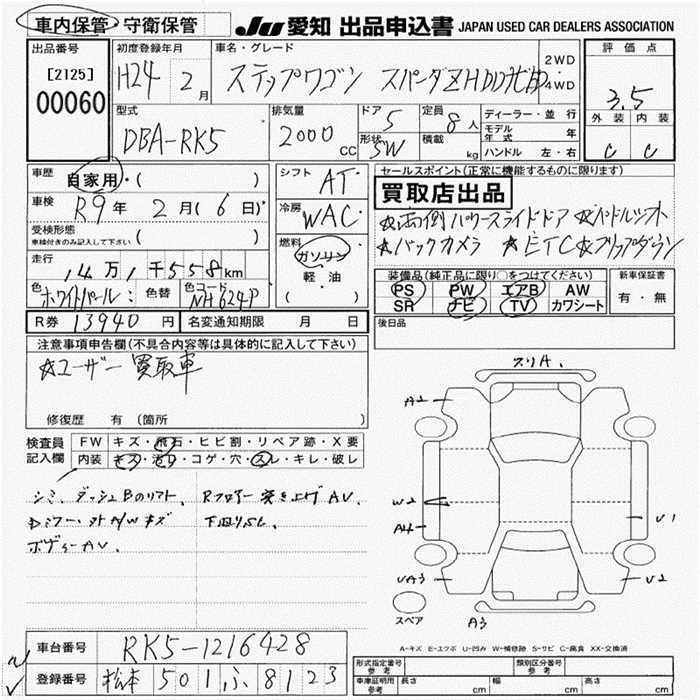 車内保管・守衛保管 JU 愛知 出品申込書 JAPAN USED CAR DEALERS ASSOCIATION
出品番号 初度登録年月 車名・グレード 2WD 4WD 評価点
[2125] H24 2月 ステップワゴン スパーダZ HDD 3.5
00060 外装 内装
型式 排気量 ドア 定員 ディーラー・並行
DBA-RK5 2000 CC 5 8人 モデル年式 年 C C
形状 積載 ハンドル 左・右
5W kg
車歴 自家用・( ) シフト AT セールスポイント(正常に機能するものに限ります)
買取店出品
車検 R9年 2月(6日) 冷房 WAC ☆両側パワースライドドア ☆パドルシフト
受検形態 車検付きのみ記入して下さい ( ) 燃料 ガソリン ☆バックカメラ ☆ETC ☆フリップダウン
走行 14万1千558km 軽・油 装備品(純正品に限り○をつけてください) 新車保証書
色 ホワイトパール 色替 色コード NH624P ( ) PS PW エアB AW 有・無
SR ナビ TV カワシート
R券 13940円 名変通知期限 月 日 後日品
注意事項申告欄(不具合内容等は具体的に記入して下さい)
☆ユーザー買取車
修復歴 有 (箇所 )
検査員記入欄 FW キズ・飛石・ヒビ割・リペア跡・X要
内装 キズ・汚れ・コゲ・穴・スレ・キレ・破レ
シミ、ダッシュBのリフト、 Rフロアー突き上げAV、
ボディーAV、
スリA、
A2
W2
A4
V1
UA3
U2
スペア A3
A-キズ E-エクボ U-凹み W-補修跡 S-サビ C-腐食 XX-交換済
車台番号 RK5-1216428
登録番号 松本 501 ふ 8123
形式指定番号 参考 類別区分番号 参考
車庫証明用 参考 長さ cm 幅 cm 高さ cm